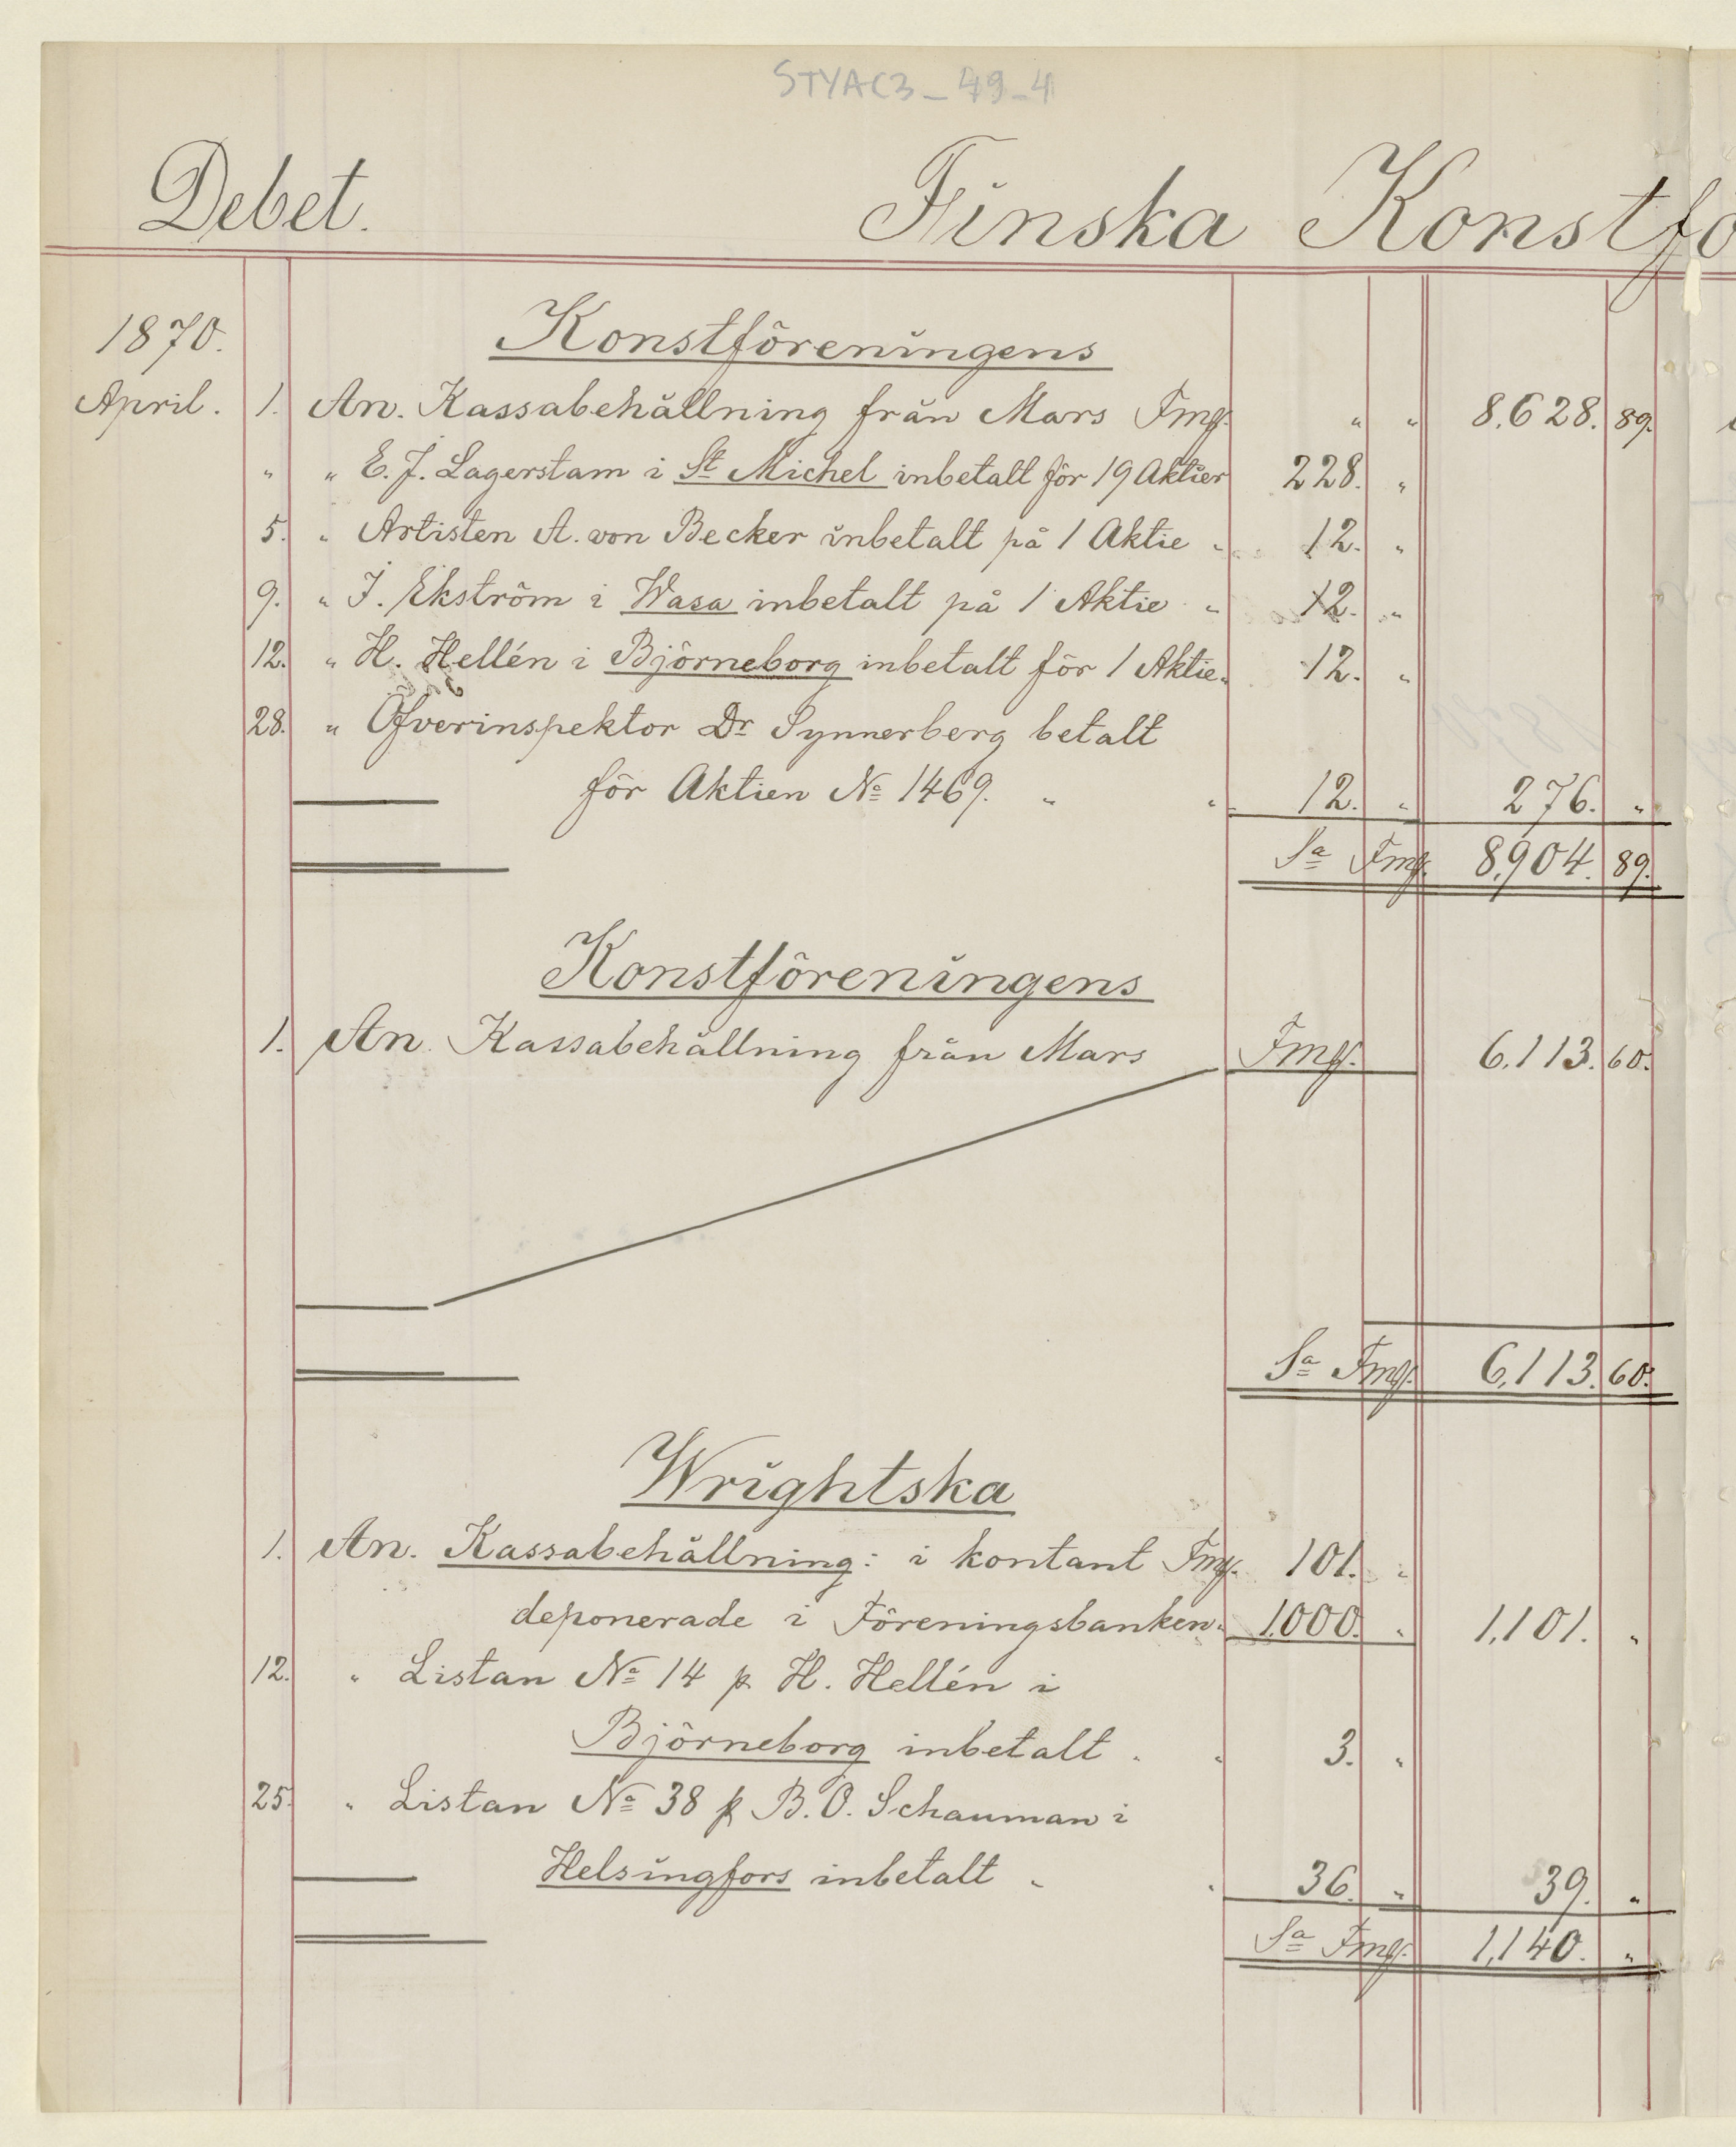 STYAC3_49_4
Debet. Finska Konstfö
1870. Konstföreningens
April. 1. An. Kassabehållning från Mars Fmg. " " 8,628. 89.
" " E. J. Lagerstam i St Michel inbetalt för 19 Aktier 228. "
5. " Artisten A. von Becker inbetalt på 1 Aktie " 12. "
9. " J. Ekström i Wasa inbetalt på 1 Aktie " 12. "
12. " H. Hellén i Björneborg inbetalt för 1 Aktie " 12. "
28. " Öfverinspektor Dr Synnerberg betalt
för Aktien No 1469. " " 12. " 276. "
Sa Fmg. 8,904. 89.
Konstföreningens
1. An. Kassabehållning från Mars Fmg. 6,113. 60.
Sa Fmg. 6,113. 60.
Wrightska
1. An. Kassabehållning: i kontant Fmg. 101. "
deponerade i Föreningsbanken " 1,000. " 1,101. "
12. " Listan No 14 p. H. Hellén i
Björneborg inbetalt " " 3. "
25. " Listan No 38 p B. O. Schauman i
Helsingfors inbetalt " " 36. " 39. "
Sa Fmg. 1,140. "